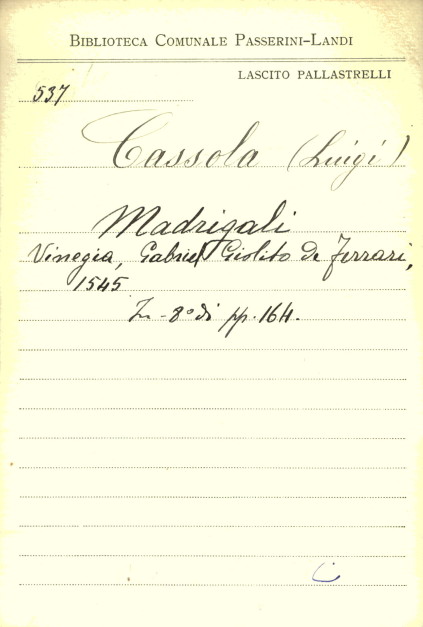 BIBLIOTECA COMUNALE PASSERINI-LANDI
LASCITO PALLASTRELLI
537
Cassola (Luigi)
Madrigali
Vinegia, Gabriel Giolito de Ferrari,
1545
In-8° di pp. 164.